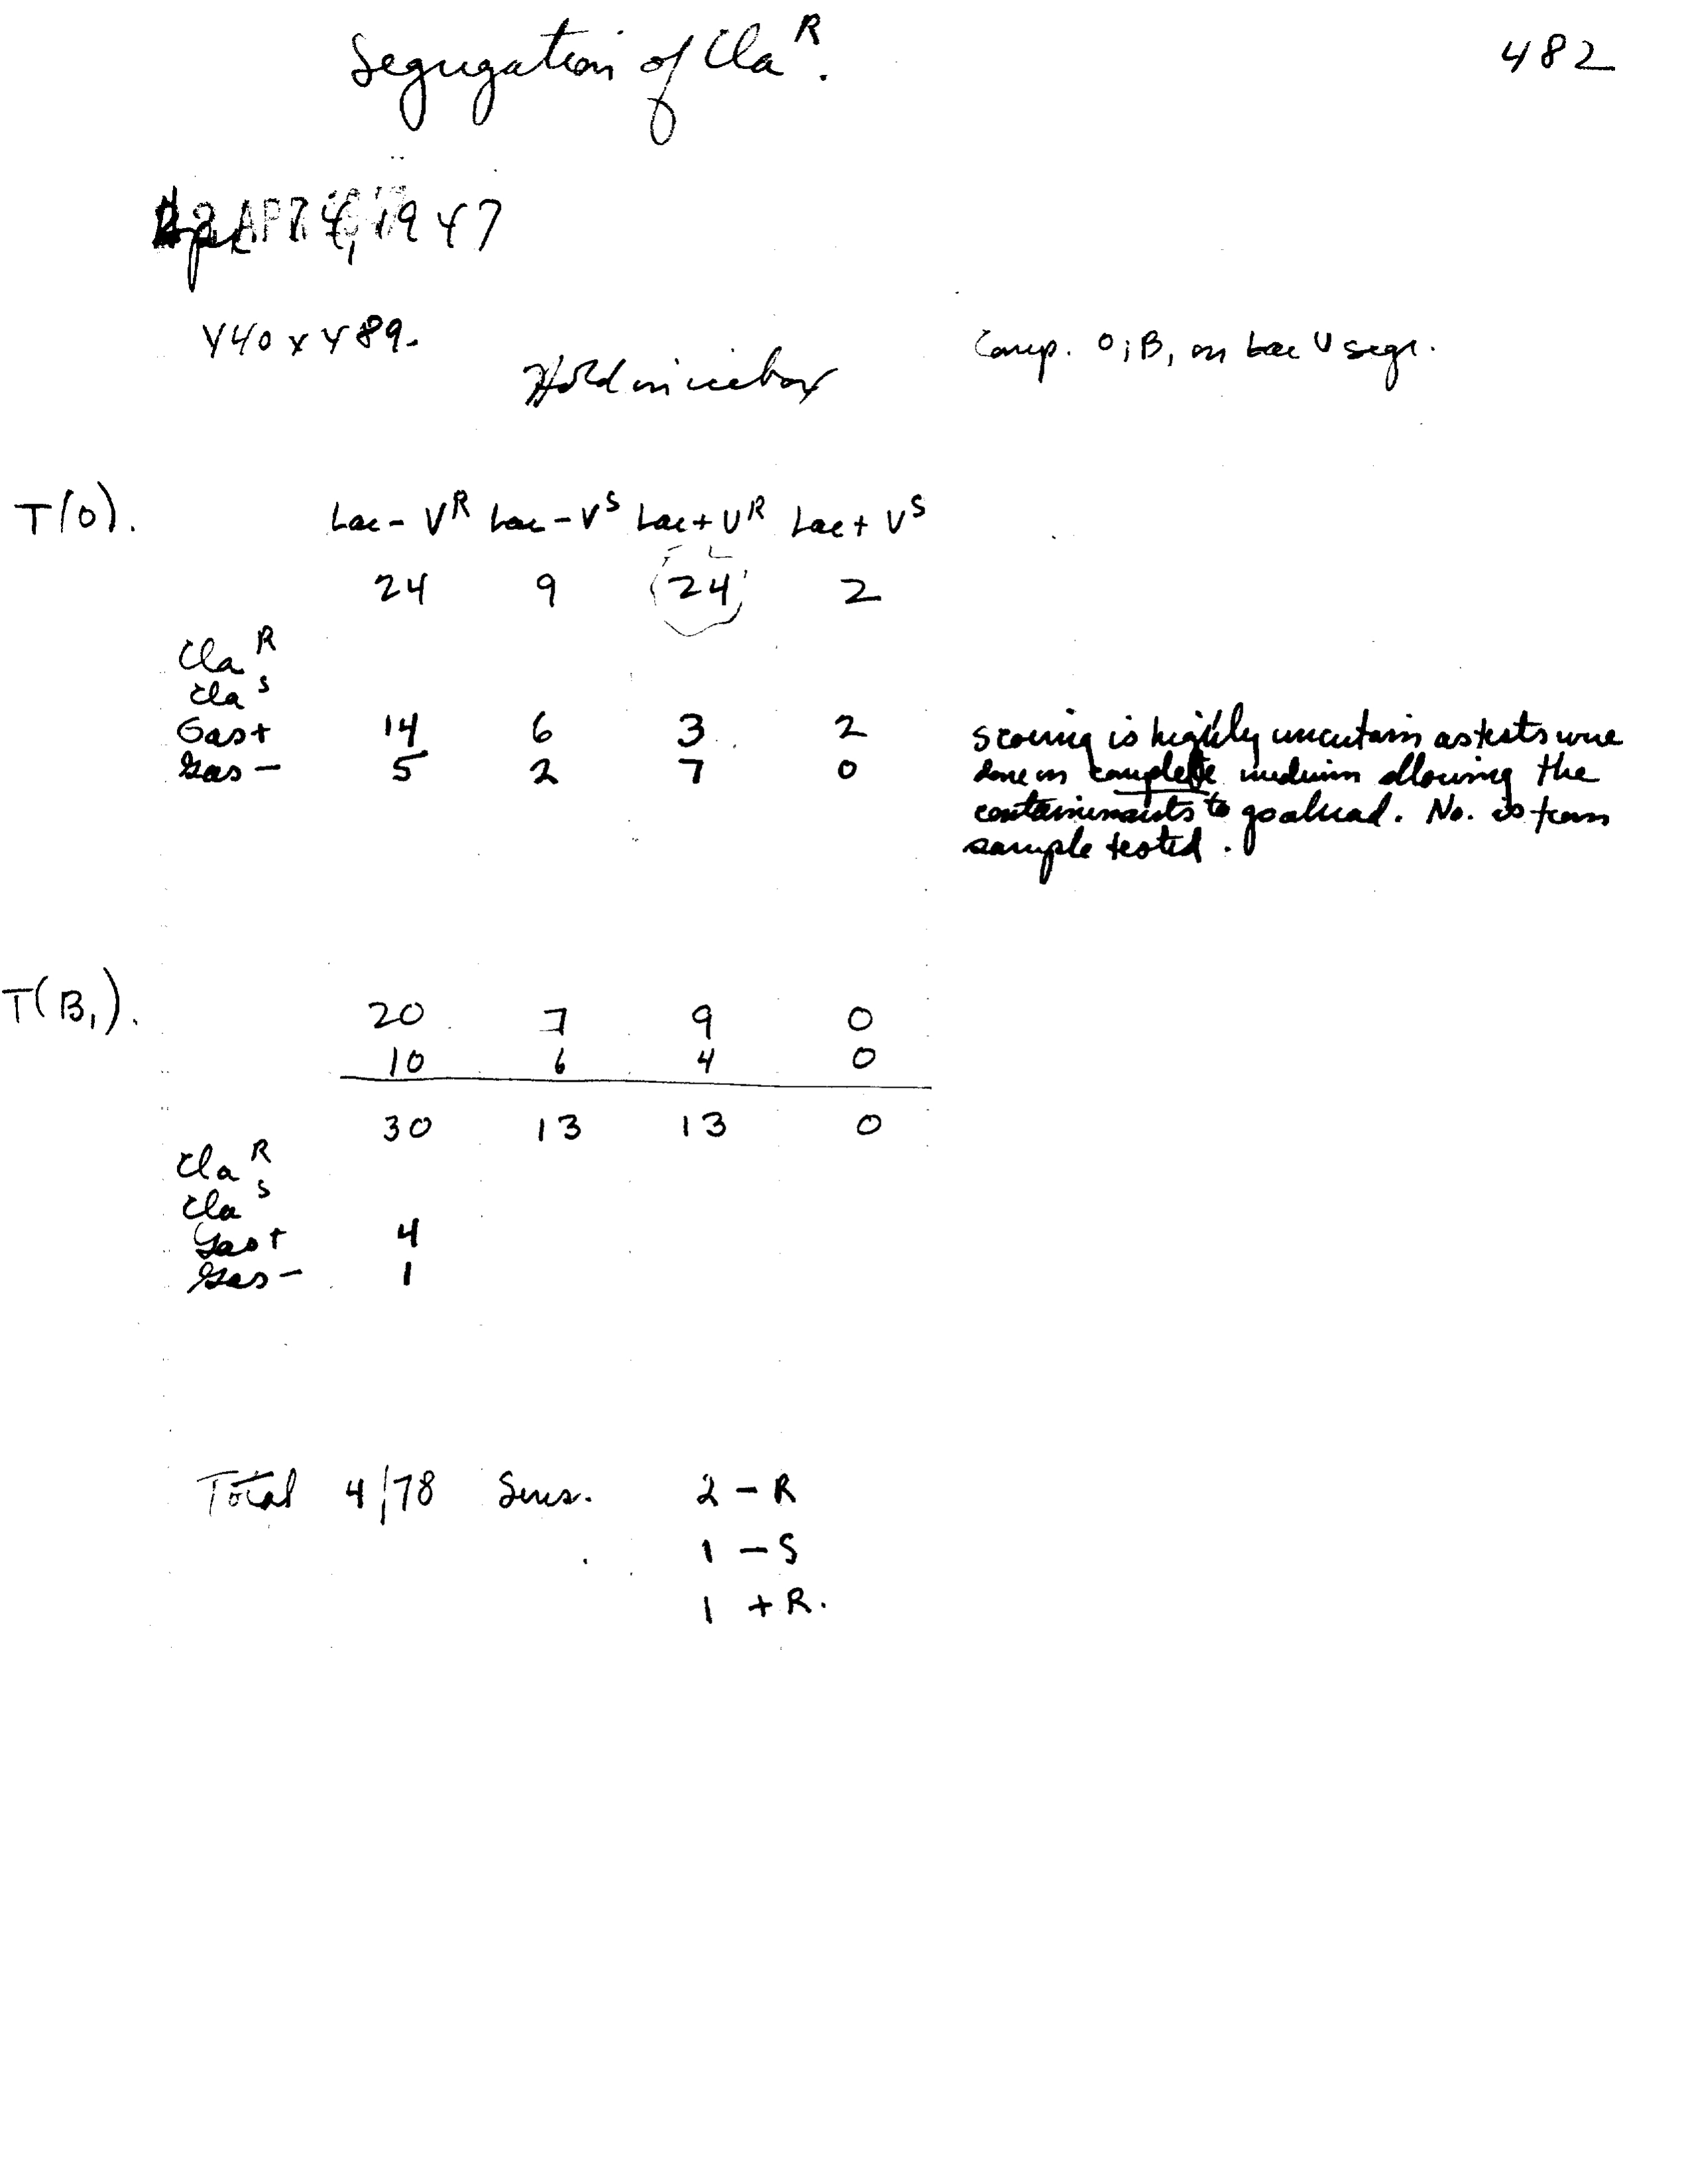 Segregation of Cla^R.
482
Apr 4, 1947
Y40 x Y89.
Hold in icebox
Comp. O; B1 on Lac V segr.
T(O).
Lac- V^R Lac-V^S Lac+V^R Lac+ V^S
24 9 24 2
Cla^R
Cla^S
Gas+ 14 6 3 2
Gas- 5 2 7 0
Scoring is highly uncertain as tests were
done in complete medium allowing the
contaminants to go ahead. No. is from
sample tested.
T(B1).
20 7 9 0
10 6 4 0
30 13 13 0
Cla^R
Cla^S
Gas+ 4
Gas- 1
Total 4/78 Sens. 2 - R
1 - S
1 + R.